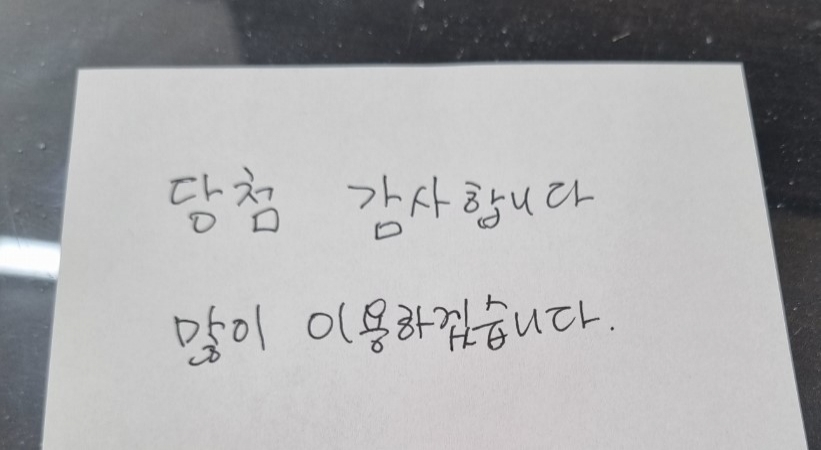 당첨 감사합니다
많이 이용하겠습니다.